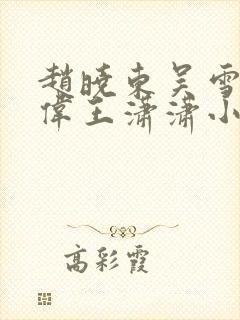 趙曉東吴雪
偉王潇潇小
高彩霞